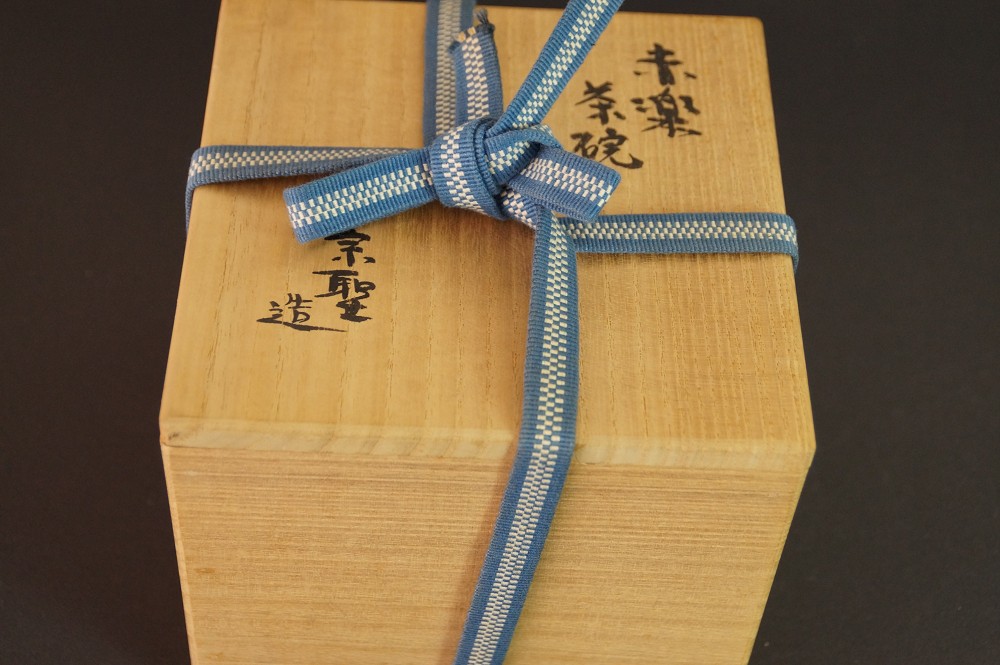 赤楽
茶碗
宗聖
造